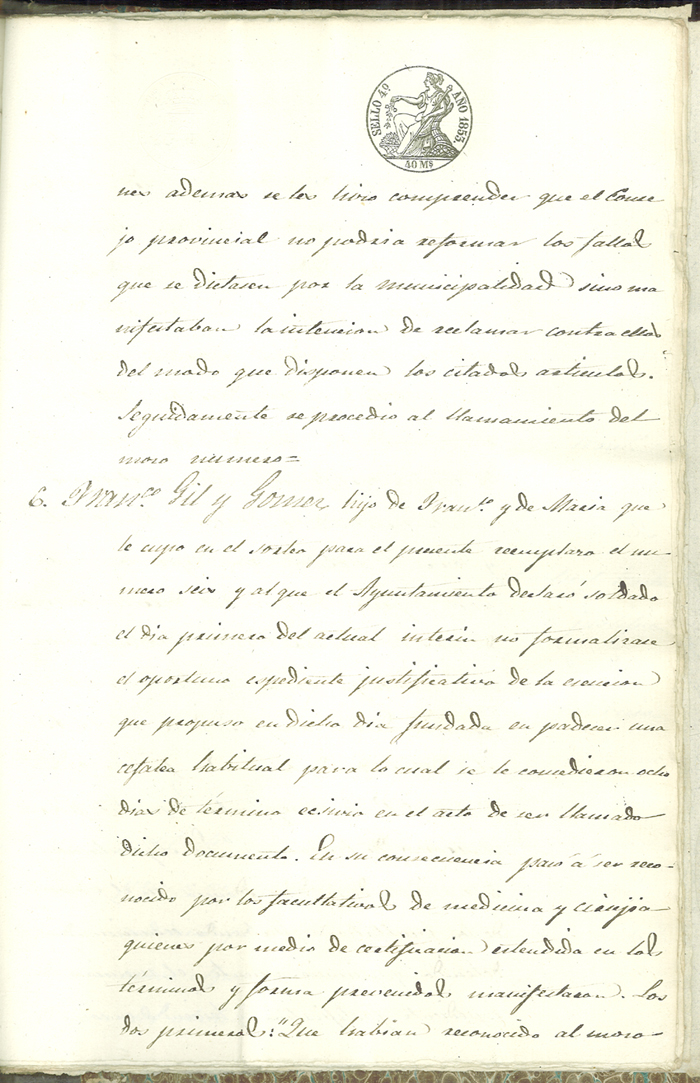 SELLO 4º AÑO 1853.
40 Ms
nes ademas se les hizo comprender que el Conse
jo provincial no podria reformar los fallos
que se dictasen por la municipalidad sino ma
nifestaban la intencion de reclamar contra ellos
del modo que disponen los citados articulos.
Seguidamente se procedio al llamamiento del
mozo numero=
6. Franco. Gil y Gomez hijo de Franco. y de Maria que
le cupo en el sorteo para el presente reemplazo el nu-
mero seis y al que el Ayuntamiento declaró soldado
el dia primero del actual interin no formalizase
el oportuno espediente justificativo de la esencion
que propuso en dicho dia fundada en padecer una
cefalea habitual para lo cual se le concedieron ocho
dias de término ecsivio en el acto de ser llamado
dicho documento. En su consecuencia pasó á ser reco-
nocido por los facultativos de medicina y cirujia
quienes por medio de certificacion estendida en los
términos y forma prevenidos manifestaron. Los
dos primeros: "Que habian reconocido al mozo-